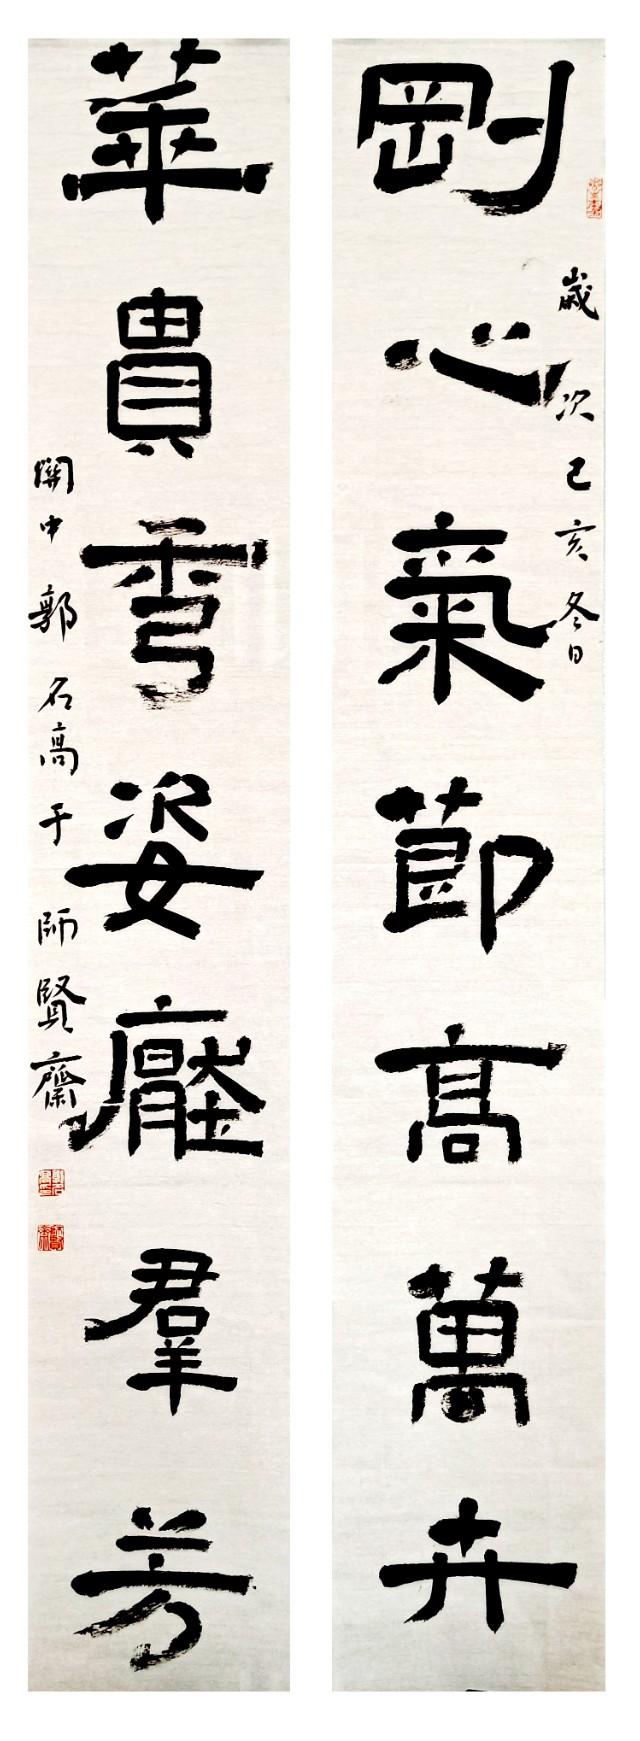 剛心氣節高萬卉
歲次己亥冬日
華貴秀姿壓羣芳
關中郭名高于師賢齋